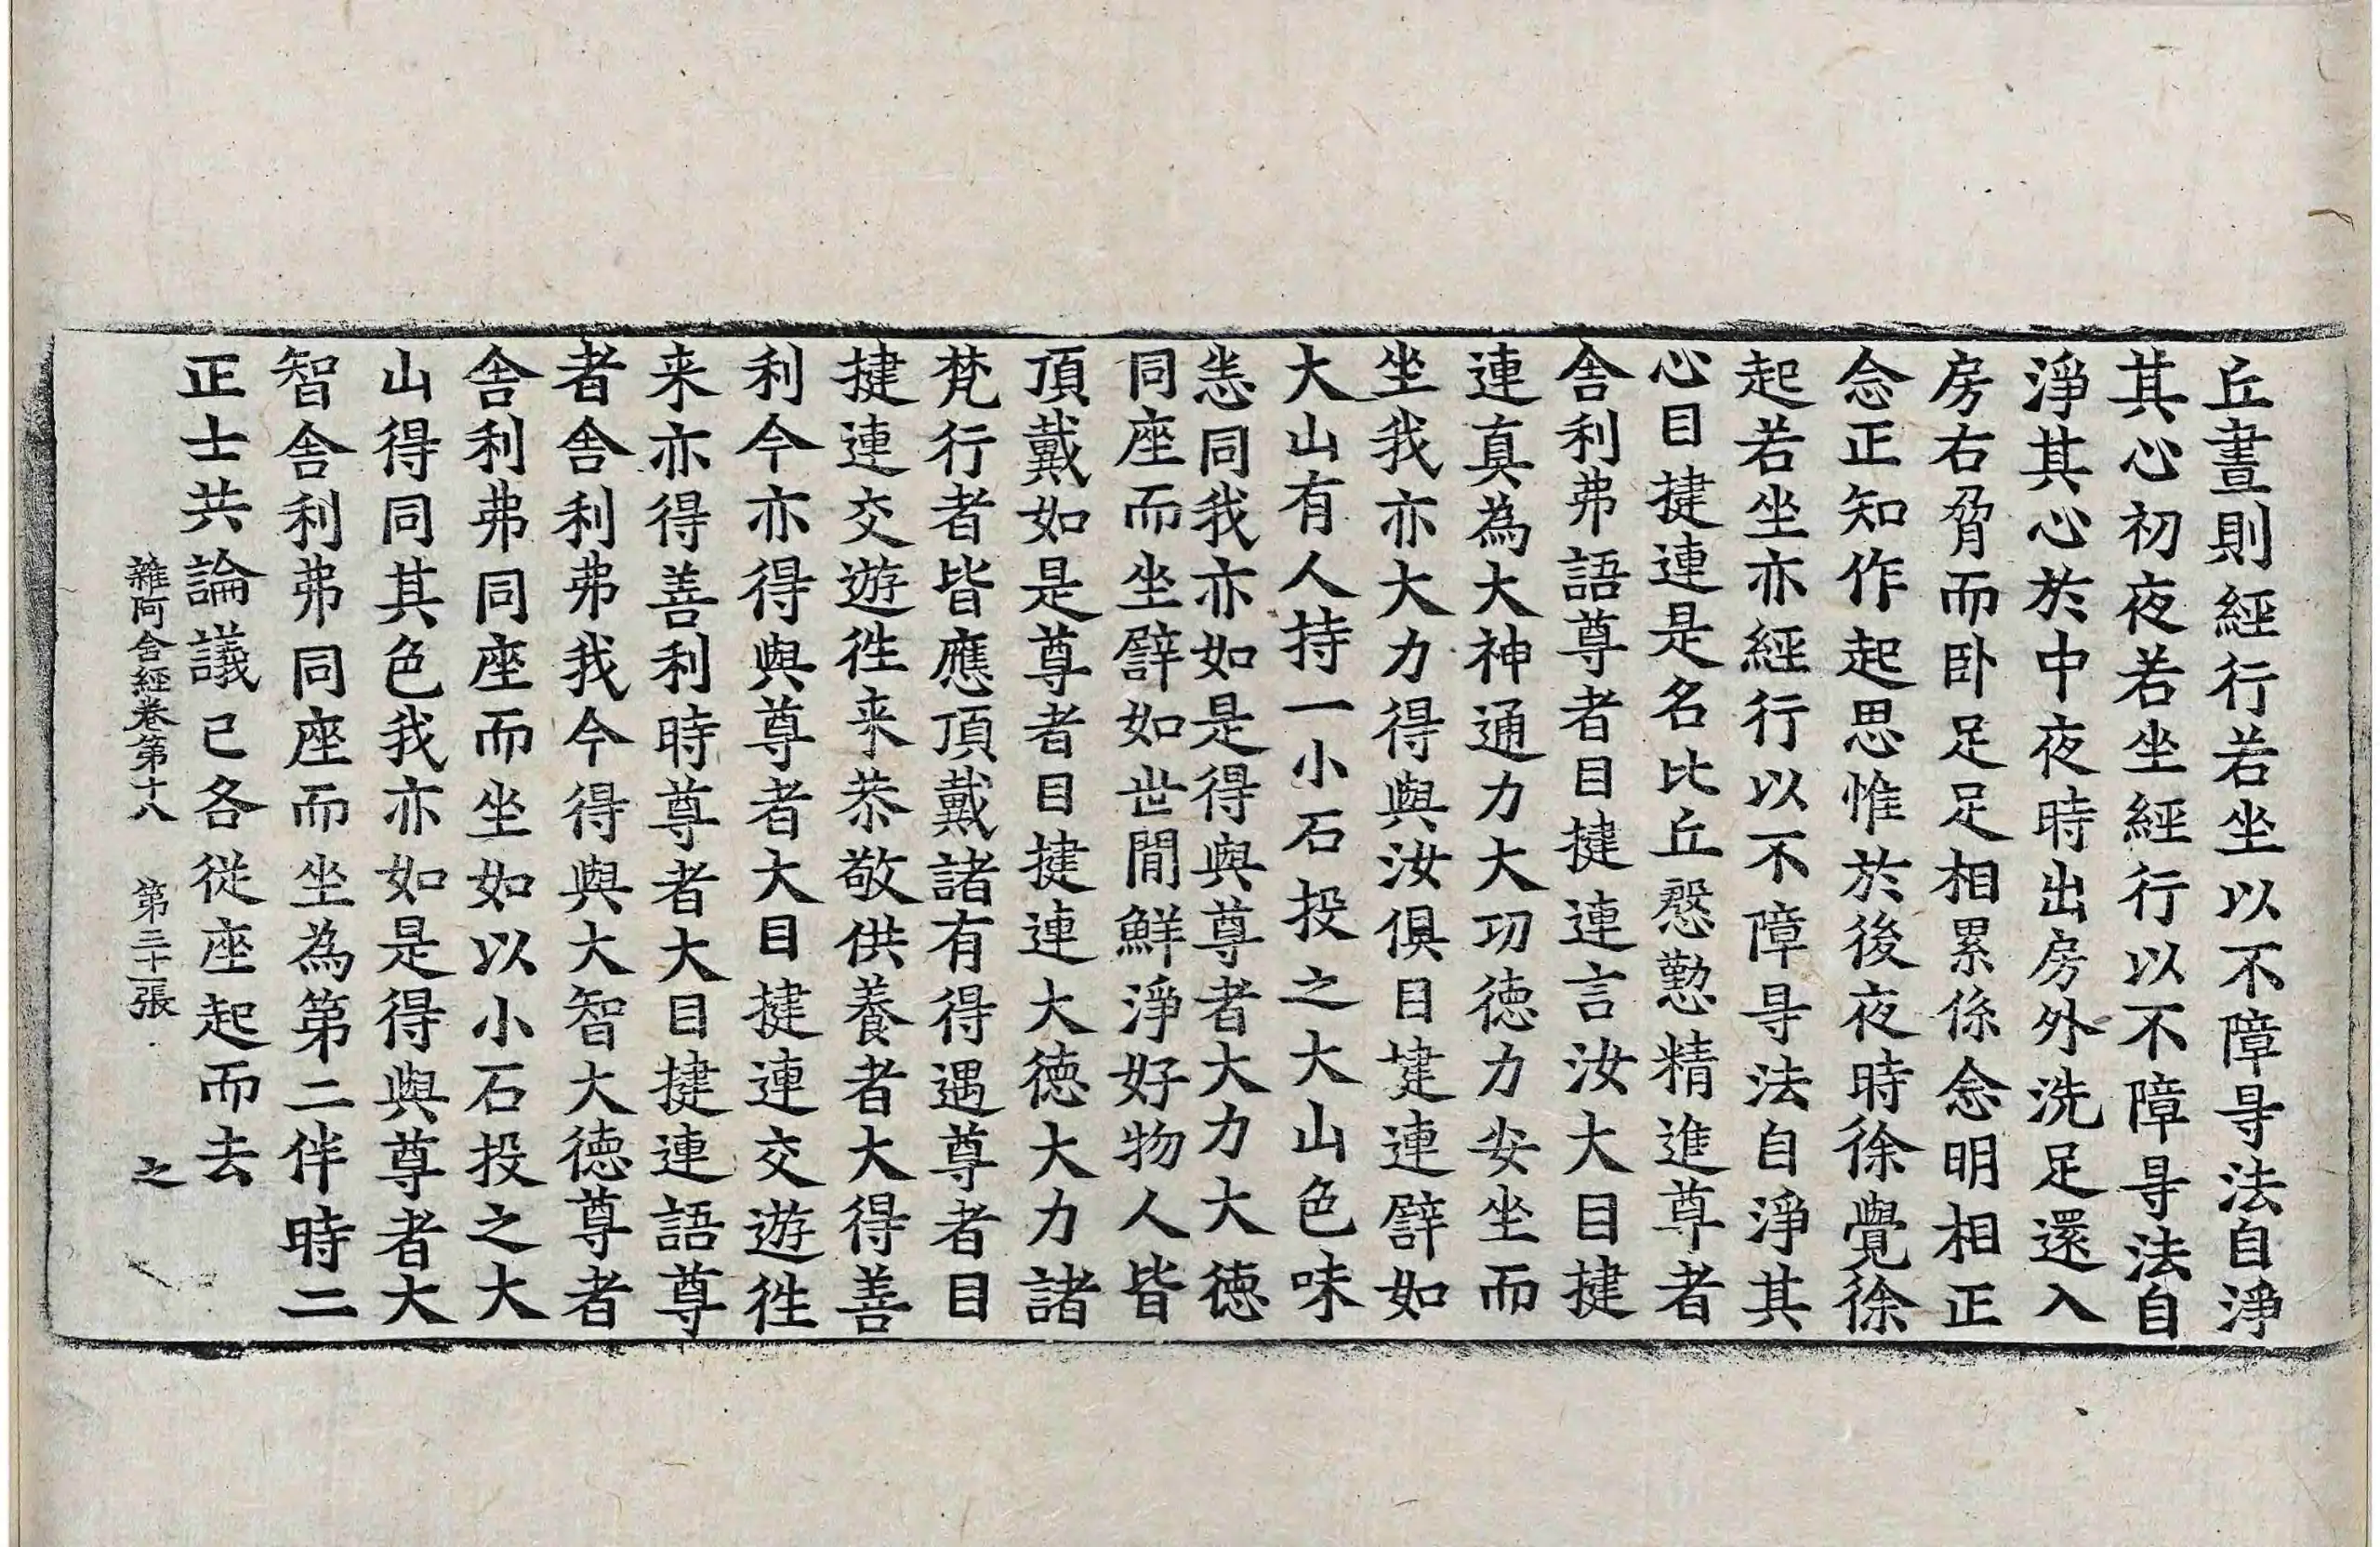 丘晝則經行若坐以不障㝵法自淨
其心初夜若坐經行以不障㝵法自
淨其心於中夜時出房外洗足還入
房右脅而卧足足相累係念明相正
念正知作起思惟於後夜時徐覺徐
起若坐亦經行以不障㝵法自淨其
心目揵連是名比丘慇懃精進尊者
舍利弗語尊者目揵連言汝大目揵
連真為大神通力大功徳力安坐而
坐我亦大力得與汝俱目揵連譬如
大山有人持一小石投之大山色味
悉同我亦如是得與尊者大力大徳
同座而坐譬如世閒鮮淨好物人皆
頂戴如是尊者目揵連大徳大力諸
梵行者皆應頂戴諸有得遇尊者目
揵連交遊徃来恭敬供養者大得善
利今亦得與尊者大目揵連交遊徃
来亦得善利時尊者大目揵連語尊
者舍利弗我今得與大智大徳尊者
舍利弗同座而坐如以小石投之大
山得同其色我亦如是得與尊者大
智舍利弗同座而坐為第二伴時二
正士共論議已各從座起而去
雜阿含經卷第十八 第二十一張 之